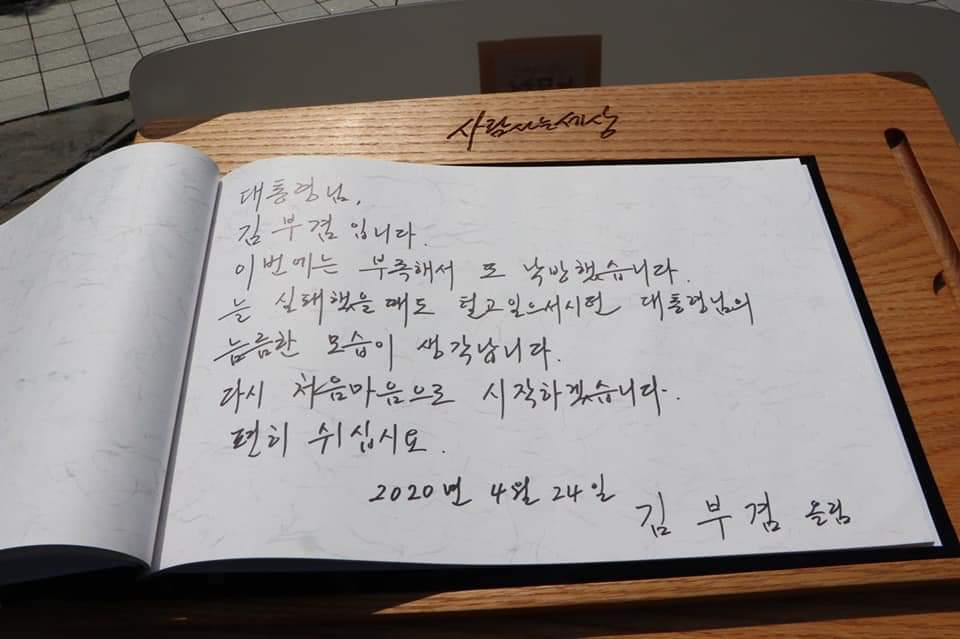 사람사는세상
대통령님.
김부겸입니다.
이번에는 부족해서 또 낙방했습니다.
늘 실패했을때도 털고일으서시던 대통령님의
늠름한 모습이 생각납니다.
다시 처음마음으로 시작하겠습니다.
편히 쉬십시요.
2020년 4월 24일
김부겸 올림